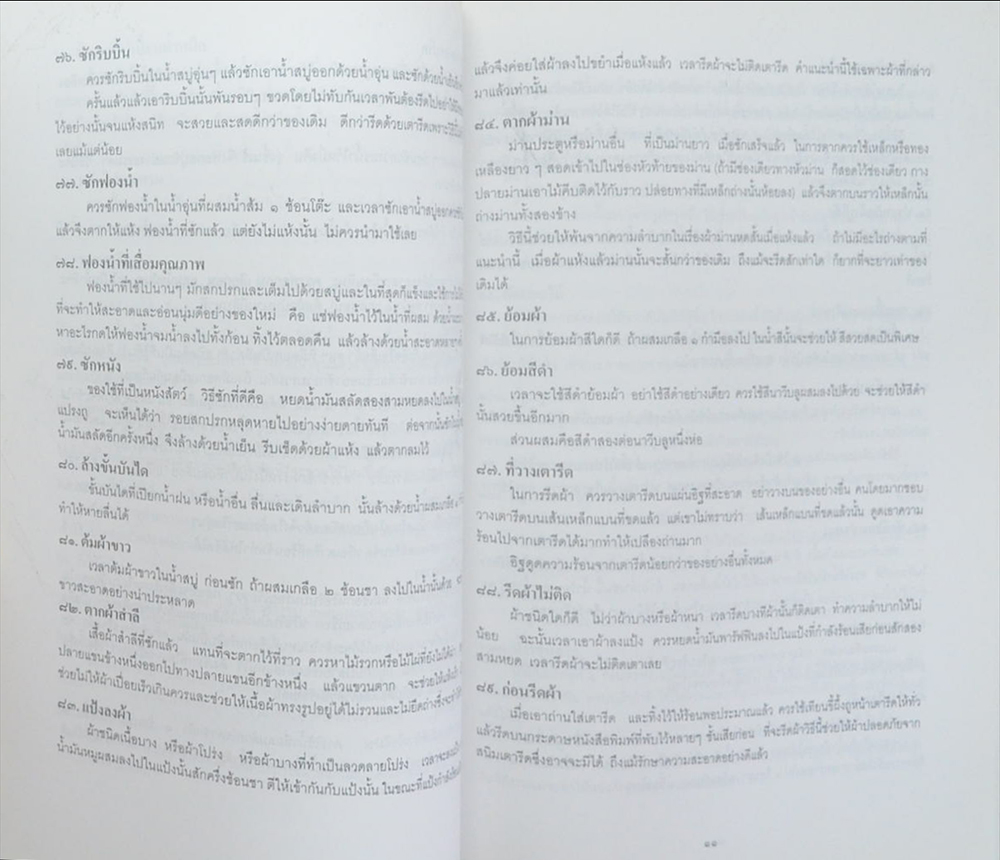 ๗๖. ซักริบบิ้น
ควรซักริบบิ้นในน้ำสบู่อุ่นๆ แล้วซักเอาน้ำสบู่ออกด้วยน้ำอุ่น และซักด้วยน้ำเย็นอีก
ครั้นแล้วแล้วเอาริบบิ้นนั้นพันรอบๆ ขวดโดยไม่ทับกันเวลาพันต้องรีดไปอย่าให้มี
ไว้อย่างนั้นจนแห้งสนิท จะสวยและสดดีกว่าของเดิม ดีกว่ารีดด้วยเตารีดเพราะ
เลยแม้แต่น้อย
๗๗. ซักฟองน้ำ
ควรซักฟองน้ำในน้ำอุ่นที่ผสมน้ำส้ม ๑ ช้อนโต๊ะ และเวลาซักเอาน้ำสบู่ออก
แล้วจึงตากให้แห้ง ฟองน้ำที่ซักแล้ว แต่ยังไม่แห้งนั้น ไม่ควรนำมาใช้เลย
๗๘. ฟองน้ำที่เสื่อมคุณภาพ
ฟองน้ำที่ใช้ไปนานๆ มักสกปรกและเต็มไปด้วยสบู่และในที่สุดก็แข็งและใช้
ที่จะทำให้สะอาดและอ่อนนุ่มดีอย่างของใหม่ คือ แช่ฟองน้ำไว้ในน้ำที่ผสม
หาอะไรกดให้ฟองน้ำจมน้ำลงไปทั้งก้อน ทิ้งไว้ตลอดคืน แล้วล้างด้วยน้ำสะอาด
๗๙. ซักหนัง
ของใช้ที่เป็นหนังสัตว์ วิธีซักที่ดีคือ หยดน้ำมันสลัดสองสามหยดลงไปใน
แปรงถู จะเห็นได้ว่า รอยสกปรกหลุดหายไปอย่างง่ายดายทันที ต่อจากนั้น
น้ำมันสลัดอีกครั้งหนึ่ง จึงล้างด้วยน้ำเย็น รีบเช็ดด้วยผ้าแห้ง แล้วตากลมไว้
๘๐. ล้างขั้นบันได
ขั้นบันไดที่เปียกน้ำฝน หรือน้ำอื่น ลื่นและเดินลำบาก นั้นล้างด้วยน้ำผสมเกลือ
ทำให้หายลื่นได้
๘๑. ต้มผ้าขาว
เวลาต้มผ้าขาวในน้ำสบู่ ก่อนซัก ถ้าผสมเกลือ ๒ ช้อนชา ลงไปในน้ำนั้นด้วย
ขาวสะอาดอย่างน่าประหลาด
๘๒. ตากผ้าสำลี
เสื้อผ้าสำลีที่ซักแล้ว แทนที่จะตากไว้ที่ราว ควรหาไม้รวกหรือไม้ไผ่ที่ยังไม่ได้ผ่า
ปลายแขนข้างหนึ่งออกไปทางปลายแขนอีกข้างหนึ่ง แล้วแขวนตาก จะช่วยให้
ช่วยไม่ให้ผ้าเปื่อยเร็วเกินควรและช่วยให้เนื้อผ้าทรงรูปอยู่ได้ไม่รวนและไม่ยืดถ่างซึ่งจะ
๘๓. แป้งลงผ้า
ผ้าชนิดเนื้อบาง หรือผ้าโปร่ง หรือผ้าบางที่ทำเป็นลวดลายโปร่ง เวลาจะ
น้ำมันหมูผสมลงไปในแป้งนั้นสักครึ่งช้อนชา ตีให้เข้ากันกับแป้งนั้น ในขณะที่แป้งกำลังร้อน
แล้วจึงค่อยใส่ผ้าลงไปขยำเมื่อแห้งแล้ว เวลารีดผ้าจะไม่ติดเตารีด คำแนะนำนี้ใช้เฉพาะผ้าที่กล่าว
มาแล้วเท่านั้น
๘๔. ตากผ้าม่าน
ม่านประตูหรือม่านอื่น ที่เป็นม่านยาว เมื่อซักเสร็จแล้ว ในการตากควรใช้เหล็กหรือทอง
เหลืองยาว ๆ สอดเข้าไปในช่องหัวท้ายของม่าน (ถ้ามีช่องเดียวทางหัวม่าน ก็สอดไว้ช่องเดียว กาง
ปลายม่านเอาไม้คีบติดไว้กับราว ปล่อยทางที่มีเหล็กถ่างนั้นห้อยลง) แล้วจึงตากบนราวให้เหล็กนั้น
ถ่างม่านทั้งสองข้าง
วิธีนี้ช่วยให้พ้นจากความลำบากในเรื่องผ้าม่านหดสั้นเมื่อแห้งแล้ว ถ้าไม่มีอะไรถ่างตามที่
แนะนำนี้ เมื่อผ้าแห้งแล้วม่านนั้นจะสั้นกว่าของเดิม ถึงแม้จะรีดสักเท่าใด ก็ยากที่จะยาวเท่าของ
เดิมได้
๘๕. ย้อมผ้า
ในการย้อมผ้าสีใดก็ดี ถ้าผสมเกลือ ๑ กำมือลงไป ในน้ำสีนั้นจะช่วยให้ สีสวยสดเป็นพิเศษ
๘๖. ย้อมสีดำ
เวลาจะใช้สีดำย้อมผ้า อย่าใช้สีดำอย่างเดียว ควรใช้สีนาวีบลูผสมลงไปด้วย จะช่วยให้สีดำ
นั้นสวยขึ้นอีกมาก
ส่วนผสมคือสีดำสองต่อนาวีบลูหนึ่งห่อ
๘๗. ที่วางเตารีด
ในการรีดผ้า ควรวางเตารีดบนแผ่นอิฐที่สะอาด อย่าวางบนของอย่างอื่น คนโดยมากชอบ
วางเตารีดบนเส้นเหล็กแบนที่ขดแล้ว แต่เขาไม่ทราบว่า เส้นเหล็กแบนที่ขดแล้วนั้น ดูดเอาความ
ร้อนไปจากเตารีดได้มากทำให้เปลืองถ่านมาก
อิฐดูดความร้อนจากเตารีดน้อยกว่าของอย่างอื่นทั้งหมด
๘๘. รีดผ้าไม่ติด
ผ้าชนิดใดก็ดี ไม่ว่าผ้าบางหรือผ้าหนา เวลารีดบางทีผ้านั้นก็ติดเตา ทำความลำบากให้ไม่
น้อย ฉะนั้นเวลาเอาผ้าลงแป้ง ควรหยดน้ำมันพาร์ฟฟินลงไปในแป้งที่กำลังร้อนเสียก่อนสักสอง
สามหยด เวลารีดผ้าจะไม่ติดเตาเลย
๘๙. ก่อนรีดผ้า
เมื่อเอาถ่านใส่เตารีด และทิ้งไว้ให้ร้อนพอประมาณแล้ว ควรใช้เทียนขี้ผึ้งถูหน้าเตารีดให้ทั่ว
แล้วรีดบนกระดาษหนังสือพิมพ์ที่พับไว้หลายๆ ชั้นเสียก่อน ที่จะรีดผ้าวิธีนี้ช่วยให้ผ้าปลอดภัยจาก
สนิมเตารีดซึ่งอาจจะมีได้ ถึงแม้รักษาความสะอาดอย่างดีแล้ว
๑๑